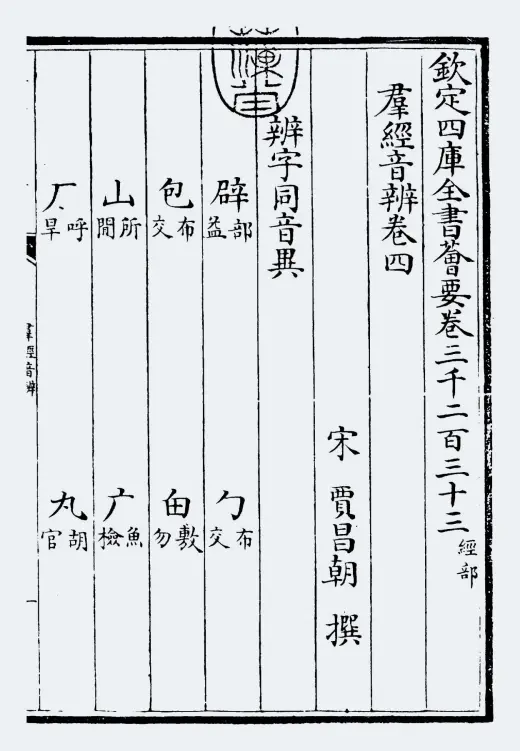 欽定四庫全書薈要卷三千二百三十三 經部
羣經音辨卷四
宋 賈昌朝 撰
辨字同音異
辟 部益 勹 布交
包 布交 甶 敷勿
山 所閒 广 魚檢
厂 呼旱 丸 胡官
羣經音辨
一